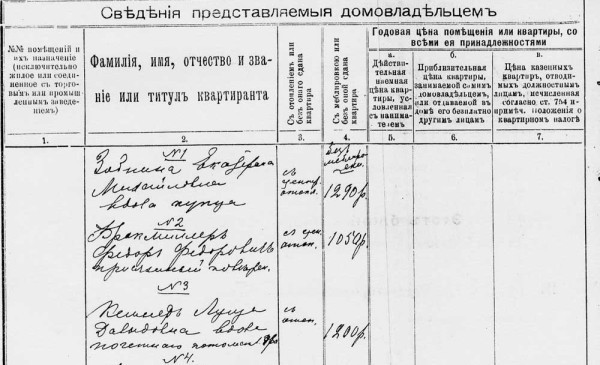 Свѣдѣнія представляемыя домовладѣльцемъ
№№ помѣщеній и
ихъ назначеніе
(исключительно
жилое или соеди-
ненное съ торго-
вымъ или промыш-
леннымъ заведе-
ніемъ)
Фамилія, имя, отчество и зва-
ніе или титулъ квартиранта
Съ отопленіемъ или
безъ онаго сдана
квартира
Съ меблировкою или
безъ оной сдана
квартира
Годовая цѣна помѣщенія или квартиры, со
всѣми ея принадлежностями
а.
Дѣйстви-
тельная
наемная
цѣна квар-
тиры, ус-
ловленная
съ нанима-
телемъ
б.
Приблизитель-
ная цѣна квартиры,
занимаемой самимъ
домовладѣльцемъ,
или отдаваемой въ
домѣ его безплатно
другимъ лицамъ
в.
Цѣна казенныхъ
квартиръ, отводи-
мыхъ должностнымъ
лицамъ, исчисленная
согласно ст. 764 и
примѣч. Положенія о
квартирномъ налогѣ
1.
2.
3.
4.
5.
6.
7.
№1
Михайловна
вдова купца
съ
1290 р.
№2
Брокмиллеръ
Федоръ Федоровичъ
присяжный повѣрен.
1050 р.
№3
Давыдовна вдова
съ
отоп.
1200 р.
№4.